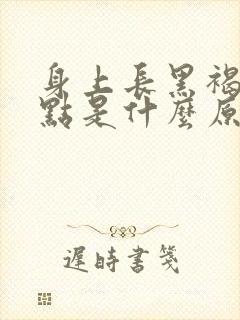 身上長黑褐
點是什麼原
遲時書箋